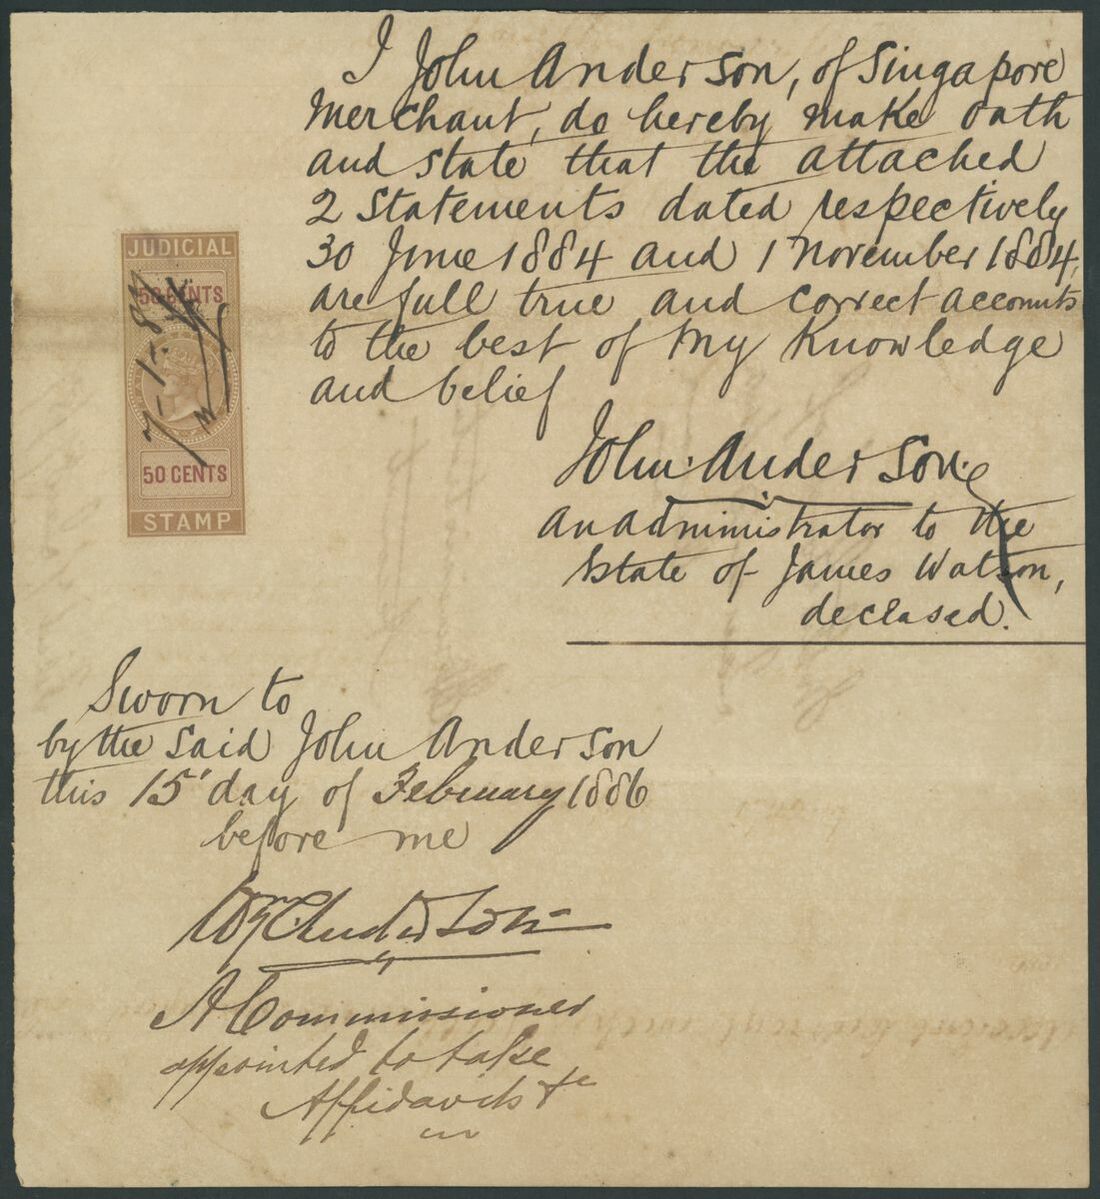 I John Anderson, of Singapore
Merchant, do hereby make oath
and state that the attached
2 Statements dated respectively
30 June 1884 and 1 November 1884,
are full true and correct accounts
to the best of my Knowledge
and belief
John Anderson
an administrator to the
Estate of James Watson,
deceased.
JUDICIAL
50 CENTS
7-1-87
50 CENTS
STAMP
Sworn to
by the said John Anderson
this 15' day of February 1886
before me
Anderson
A Commissioner
appointed to take
Affidavits &c